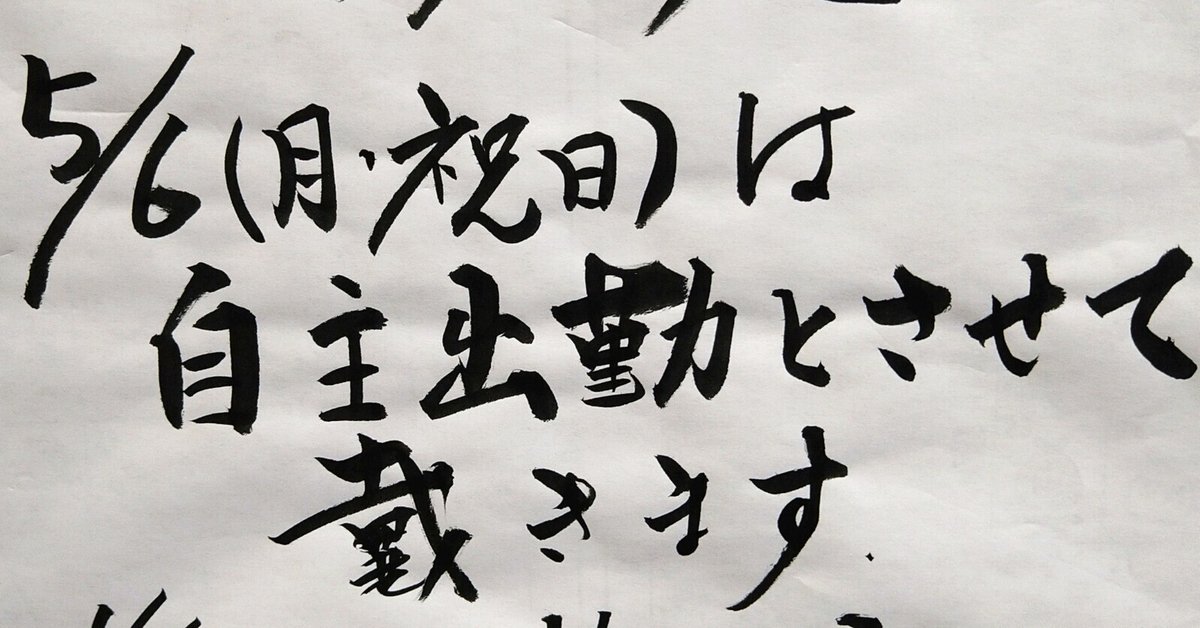 5/6(月・祝日)は
自主出勤とさせて
戴きます.